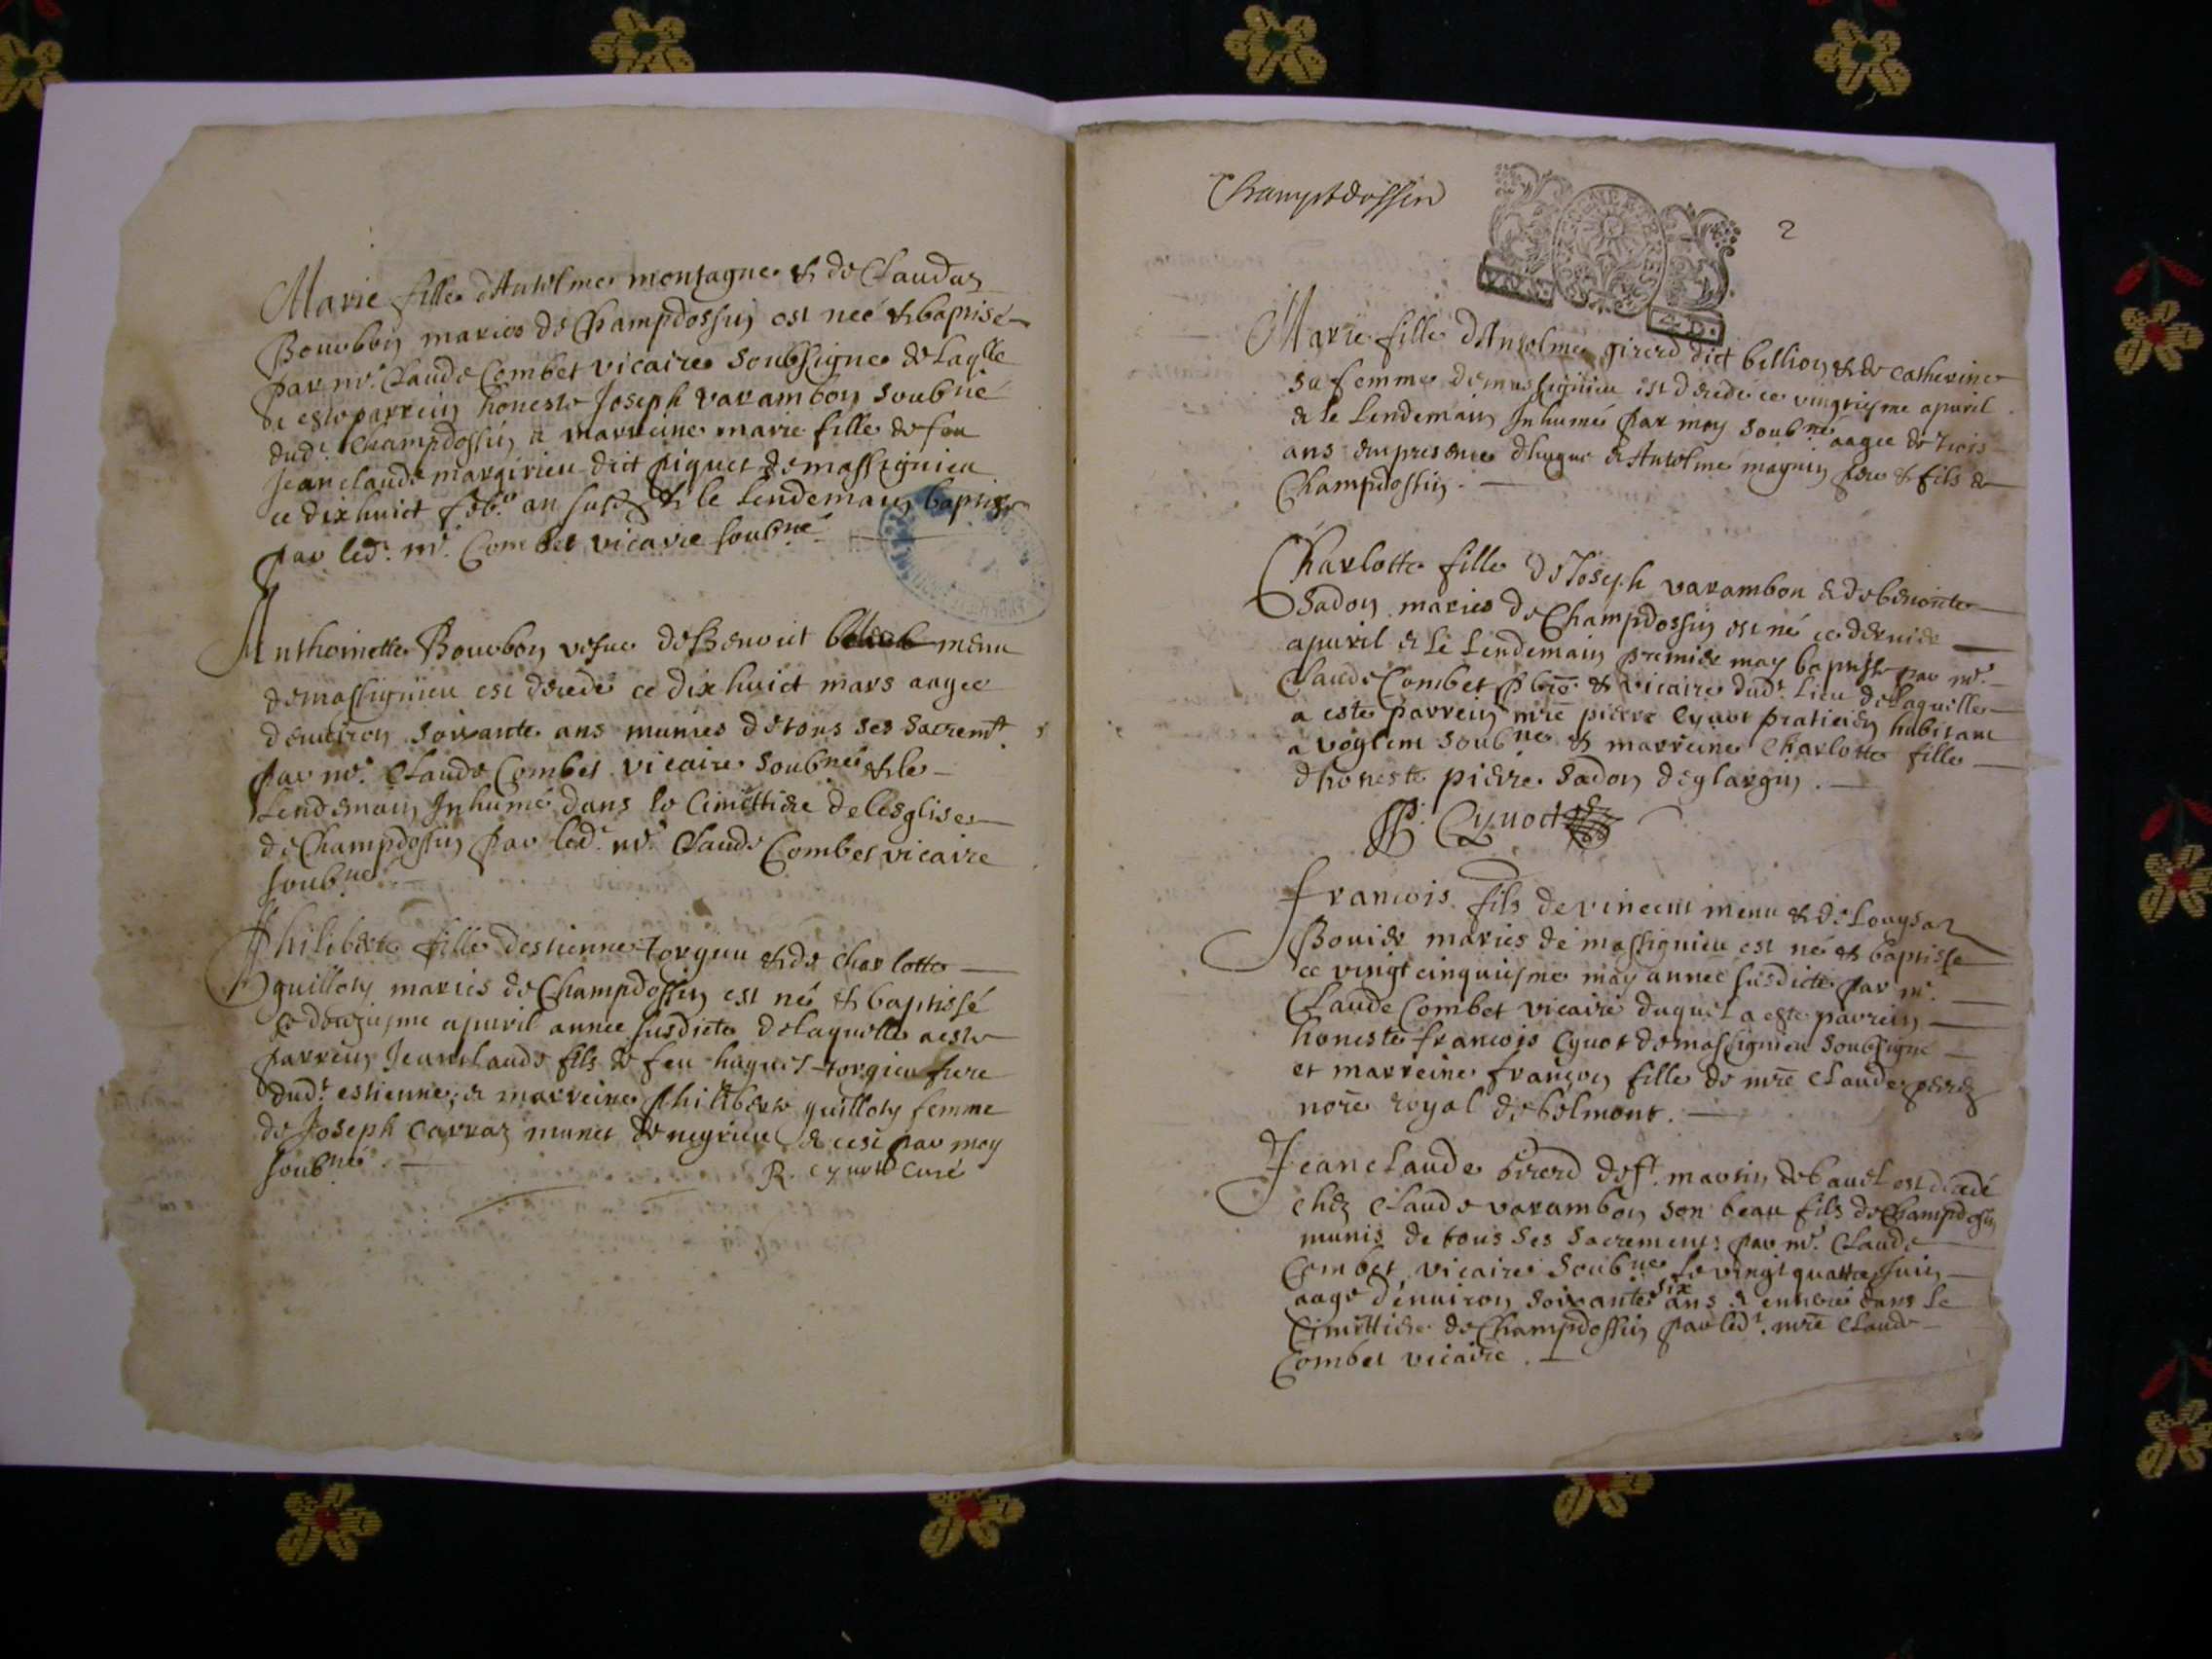 Marie fille d'Antelme montagne & de Claudaz
Bourbon maries de Champdossin est neé & baptisé
par mr. Claude Combet vicaire soubsigne de laqlle
a esté parrein honeste Joseph varambon soubné
dudt Champdossin & marreine marie fille de feu
Jeanclaude margirieu dict piquet de massignieu
ce dixhuict febr. an susd & le lendemain baptise
par ledt. mr. Combet vicaire soubné
Anthoinette Bourbon vefue de Benoict menu
de massignieu est decedé ce dixhuict mars aagee
denuiron soixante ans munies de tous ses sacremts
par mr. Claude Combet vicaire soubné & le
lendemain Inhumé dans le Cimettiere de lesglise
de Champdossin par ledt. mr. Claude Combet vicaire
soubné
Philiberte fille destienne torgeu & de Charlotte
guillon maries de Champdossin est né & baptissé
ce douziesme apuril annee susdicte de laquelle a esté
parrein Jeanclaude fils de feu huguet torgieu frere
dudt estienne, & marreine philiberte guillon femme
de Joseph Carraz munet de negrieu & cest par moy
soubné.
R. Cynod Curé
Champtdossin
2
VN S.
4 D.
Marie fille d'Antelme girerd dict bellion & de Catherine
sa femme de massignieu est decedé ce vingtiesme apuril
& le lendemain Inhumé par moy soubné aagee de trois
ans en presence d'hugue & Antelme magnin pere & fils de
Champdossin.
Charlotte fille de Joseph varambon & de benoite
Sadon maries de Champdossin est né ce dernier
apuril & le lendemain premier may baptisse par mr.
Claude Combet pbre & vicaire dudt. lieu de laquelle
a esté parrein mre pierre Cynot praticien habitant
a voglem soubné & marreine Charlotte fille
d'honeste pierre Sadon deglargin.
P. Cynod
francois fils de vincent menu & de Louysaz
Bouier maries de massignieu est né & baptisse
ce vingt cinquiesme may annee susdicte par mr.
Claude Combet vicaire duquel a esté parrein
honeste francois Cynot de massignieu soubsigne
et marreine françon fille de mre Claude perez
nore royal de belmont.
Jeanclaude Girerd de st. martin de bauel est decedé
chez Claude varambon son beau fils de Champdossin
munis de tous ses sacrements par mr. Claude
Combet vicaire soubné le vingt quattre Juin
aagé denuiron soixante six ans & enterré dans le
Cimettiere de Champdossin par ledt. mre Claude
Combet vicaire.